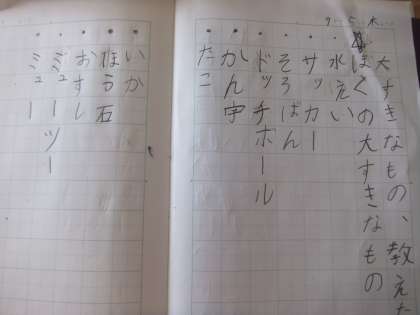 9 5 木
大すきなもの、教えた
ぼくの大すきなもの
水えい
サッカー
そろばん
ドッチボール
かん字
たこ
いか
ほう石
おすし
ミューツー
ミュー